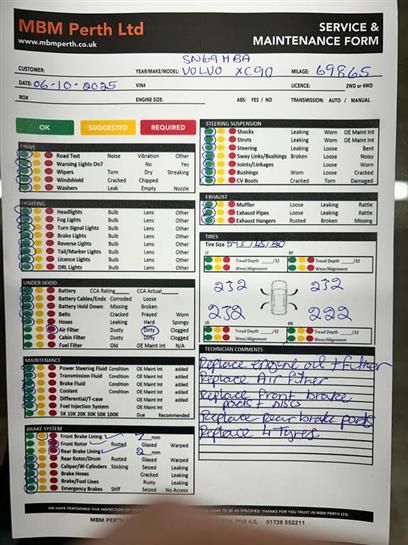 MBM Perth Ltd
www.mbmperth.co.uk
SERVICE &
MAINTENANCE FORM
SN69 HBA
CUSTOMER: YEAR/MAKE/MODEL: VOLVO XC90 MILEAGE: 69865
DATE: 06-10-2025 VIN# LICENCE: 2WD or 4WD
RO# ENGINE SIZE: ABS: YES / NO TRANSMISSION: AUTO / MANUAL
OK SUGGESTED REQUIRED
DRIVE
Road Test Noise Vibration Other
Warning Lights On? No Yes
Wipers Torn Dry Streaking
Windshield Cracked Chipped
Washers Leak Empty Nozzle
LIGHTING
Headlights Bulb Lens Other
Fog Lights Bulb Lens Other
Turn Signal Lights Bulb Lens Other
Brake Lights Bulb Lens Other
Reverse Lights Bulb Lens Other
Tail/Marker Lights Bulb Lens Other
Licence Lights Bulb Lens Other
DRL Lights Bulb Lens Other
UNDER HOOD
Battery CCA Rating CCA Actual
Battery Cables/Ends Corroded Loose
Battery Hold Down Missing Broken
Belts Cracked Frayed Worn
Hoses Leaking Hard Spongy
Air Filter Dusty Dirty Clogged
Cabin Filter Dusty Dirty Clogged
Fuel Filter Old OE Maint Int N/A
MAINTENANCE
Power Steering Fluid Condition OE Maint Int added
Transmission Fluid Condition OE Maint Int added
Brake Fluid Condition OE Maint Int added
Coolant Condition OE Maint Int added
Differential/T-case OE Maint Int added
Fuel Injection System OE Maint Int
5K 10K 20K 30K 50K 100K Due Recommended
BRAKE SYSTEM
Front Brake Lining 2 mm
Front Rotor Rusted Glazed Warped
Rear Brake Lining 2 mm
Rear Rotor/Drum Rusted Glazed Warped
Caliper/W-Cylinders Sticking Seized Leaking
Brake Hoses Cracked Leaking
Brake/Fuel Lines Rusty Leaking
Emergency Brakes Stiff Seized No Access
STEERING SUSPENSION
Shocks Leaking Worn OE Maint Int
Struts Leaking Worn OE Maint Int
Steering Leaking Loose Bent
Sway Links/Bushings Broken Loose Noisy
Joints/Linkages Loose Worn
Bushings Worn Loose Cracked
CV Boots Cracked Torn Damaged
EXHAUST
Muffler Loose Leaking Rattle
Exhaust Pipes Loose Leaking Rattle
Exhaust Hangers Rusted Broken Missing
TIRES
Tire Size
LF Tread Depth /32 RF Tread Depth /32
Wear/Alignment Wear/Alignment
232 232
238 222
LR Tread Depth /32 RR Tread Depth /32
Wear/Alignment Wear/Alignment
TECHNICIAN COMMENTS
Replace engine oil + filter
Replace Air filter
Replace front brake
pads + discs
Replace rear brake pads
Replace 4 Tyres
01738 552211